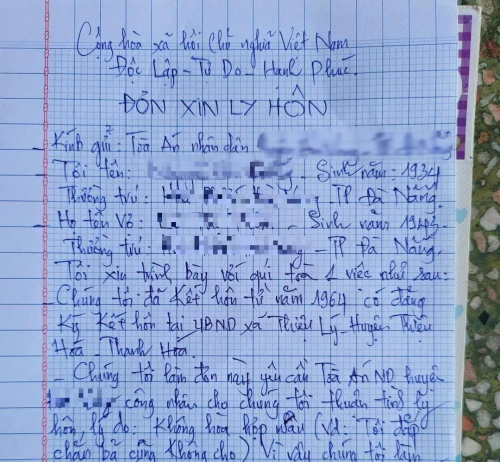 Cộng hòa xã hội Chủ nghĩa Việt Nam
Độc Lập - Tự Do - Hạnh Phúc.
ĐƠN XIN LY HÔN
- Kính gửi: Tòa Án nhân dân
Tôi tên: - Sinh năm: 1934
Thường trú: - TP Đà Nẵng.
- Họ tên Vợ: - Sinh năm
Thường trú: - TP Đà Nẵng.
Tôi xin trình bày với quí tòa 1 việc như sau:
- Chúng tôi đã Kết hôn từ năm 1964 có đăng
Ký Kết hôn tại UBND xã Thiệu Lý - Huyện Thiệu
Hóa - Thanh Hóa.
- Chúng tôi làm đơn này yêu cầu Tòa Án ND huyện
công nhận cho chúng tôi thuận tình ly
hôn lý do: Không hòa hợp nữa (Vd: Tôi đắp
chăn bà cũng không cho) Vì vậy chúng tôi làm